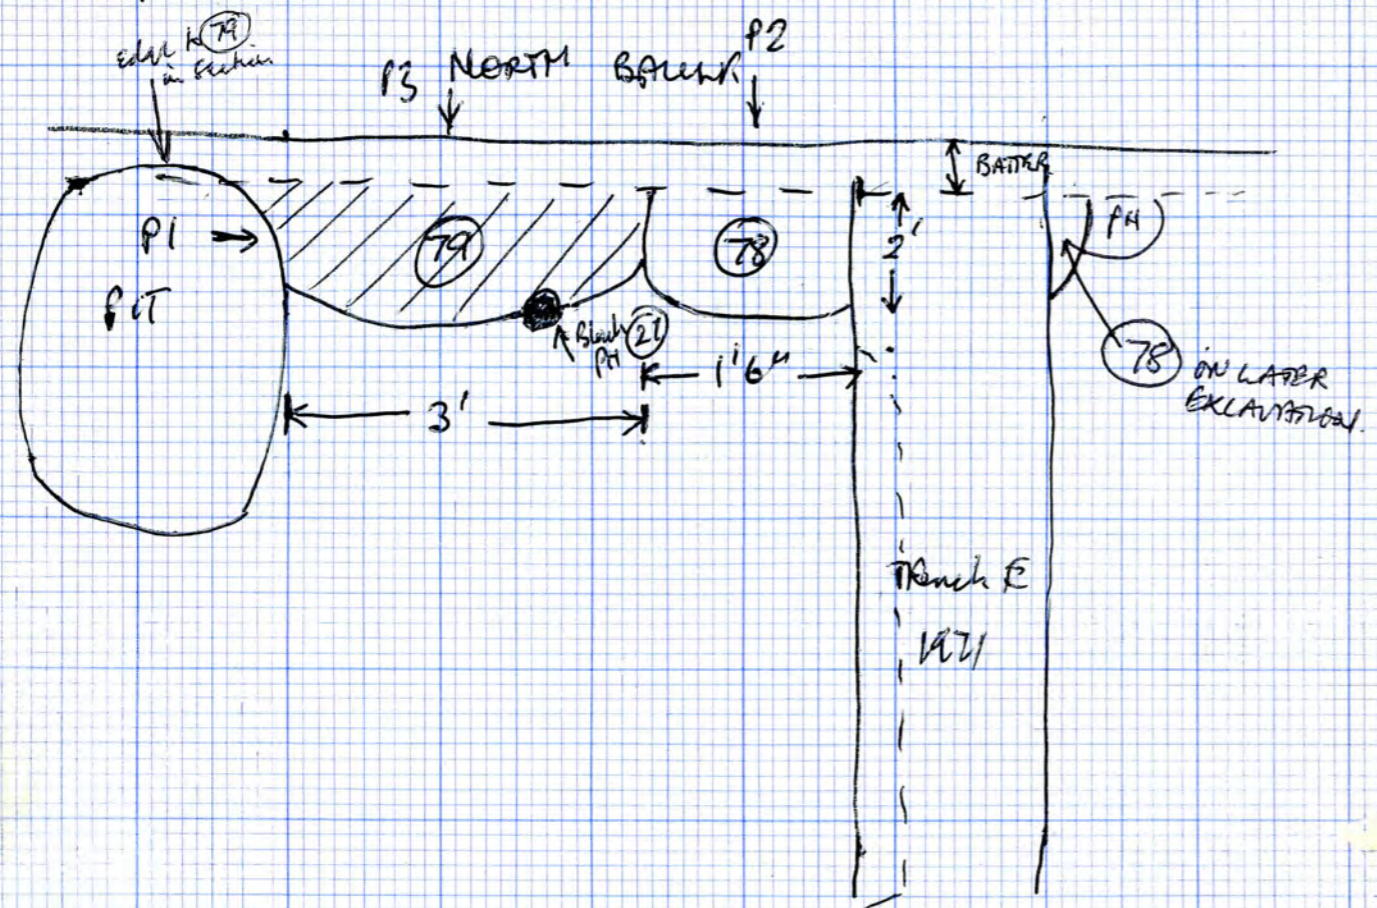 edge to 79
in section
P3 NORTH BAULK P2
BATTER
P1
PIT
79
78
2'
PH
Black 21
PH
1'6"
3'
78 ON LATER
EXCAVATION.
Trench E
1971